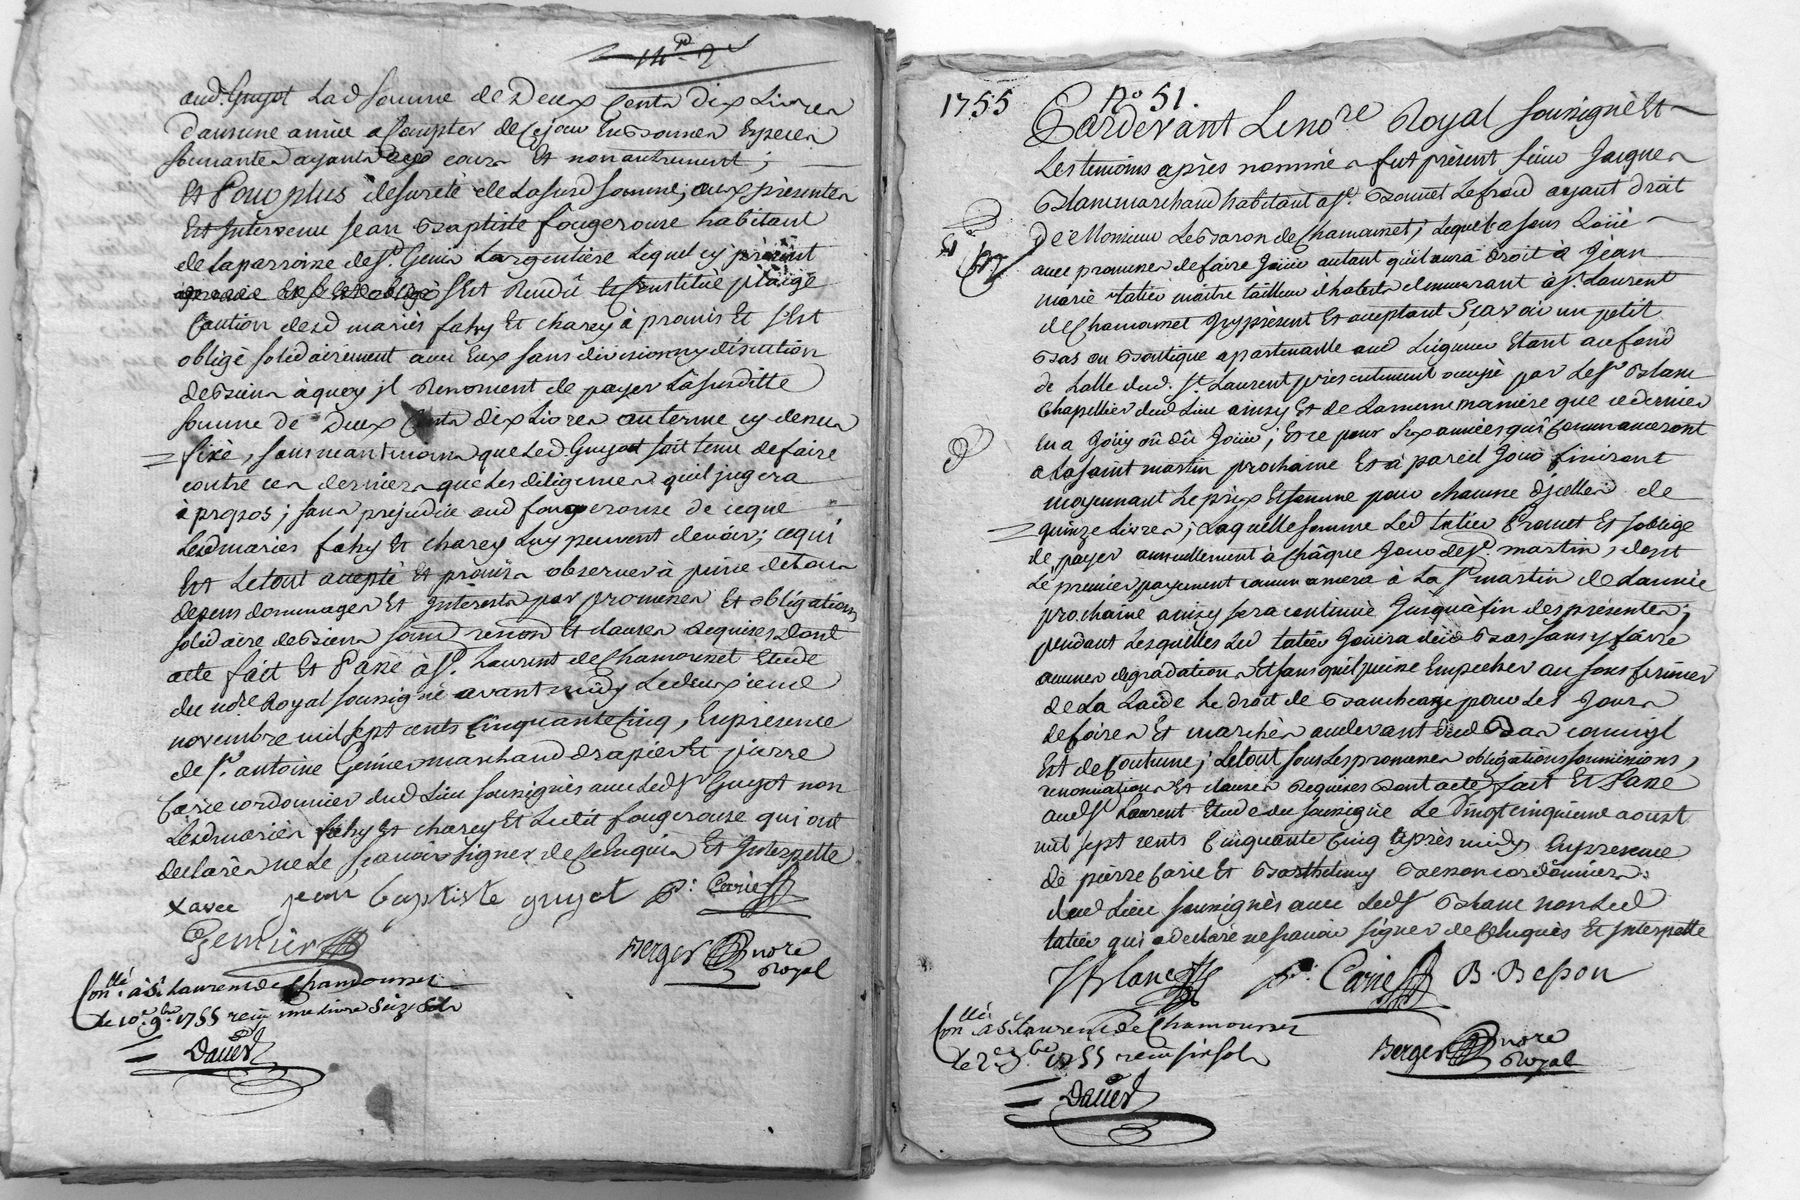 aud. Guyot Lad somme de Deux Cents Dix Livres
dans une année a Compter de Ce jour En Bonnes Especes
sonnantes ayants cours Et non autrement ;
Et Pour plus de sureté de La susd somme, aux présentes
Est Intervenu Jean Baptiste fougerouse habitant
de la parroisse de St. Genis Largentière Lequel cy présent
s'Est Rendû Constitué pleige
Caution desd mariés fahy Et charey à promis Et s'Est
obligé solidairement avec Eux sans division ny discution
de Biens à quoy il Renoncent de payer La susditte
somme de Deux Cents dix Livres au terme cy dessus
fixé, sans neantmoins que Led Guyot soit tenu de faire
contre ces derniers que Les diligences quil jugera
à propos ; sans prejudice aud fougerouse de ce que
Lesd mariés fahy Et charey Luy peuvent devoir ; ce qui
Est Le tout accepté Et promis observer à peine de tous
depens dommages Et Interests par promesses Et obligations
solidaire de Biens sousm renon Et clauses Requises Dont
acte fait Et Passé à St. Laurent de Chamousset Etude
du nore Royal soussigné avant midy Le deuxieme
novembre mil sept cents Cinquante Cinq, En présence
de Sr. antoine Genier marchand drapier Et pierre
Carie cordonnier dud Lieu soussignés avec Led Sr Guyot non
Lesd mariés fahy Et charey Et Ledit fougerouse qui ont
declarés ne Le sçavoir signer de Ce Enquis Et Interpellé
jean baptiste guyot P: Carie
Genier
Berger nore
Royal
Conllé à St Laurent de Chamousset
le 10e 9bre 1755 reçu une livre Seize Sols
Dauer
1755 No 51.
Pardevant Le nore Royal soussigné Et
Les temoins après nommés fut présent sieur Jacques
Blanc marchand habitant a St. Bonnet Le froid ayant droit
De Monsieur Le Baron de Chamousset ; Lequel a sous Loüé
avec promesse de faire Joüir autant quil aura droit à Jean
marie tatier maitre tailleur d'habits demeurant à St. Laurent
de Chamousset Jcy présent Et acceptant Sçavoir un petit
Bas ou Boutique apartenante aud Seigneur Etant au fond
de Lalle dud. St. Laurent présentement occupé par Le Sr Blanc
Chapellier dud Lieu ainsy Et de La meme manière que ce dernier
En a Joüy oû dû Joüir ; Et ce pour six années qui Commenceront
a La saint martin prochaine Et à pareil Jour finiront
moyennant Le prix Et somme pour chacune d'jcelles de
quinze Livres ; Laquelle somme Led tatier Promet Et soblige
de payer annuellement à Châque Jour de St. martin, dont
Le premier payement commencera à La St martin de L'année
prochaine ainsy sera continué Jusquà fin des présentes ;
pendant Lesquelles Led tatier Joüira dud Bas sans y faire
aucunes degradations Et sans quil puisse Empecher au sous fermier
de La Laide Le droit de Banchage pour Les Jours
de foires Et marchés au devant dud Bas comme il
Est de Coutume ; Le tout sous Les promesses obligations soumissions,
renonciations Et clauses Requises Dont acte fait Et Passé
aud St Laurent Etude du soussigné Le Vingt cinquieme aoust
mil sept cents Cinquante Cinq Après midy En presence
de pierre Carie Et Barthelemy Besson cordonniers
dud Lieu soussignés avec Led Sr Blanc non Led
tatier qui a declaré ne sçavoir signer de Ce Enquis Et Interpellé
J Blanc P: Carie B. Beson
Berger nore
Royal
Conllé à St Laurent de Chamousset
le 2e 7bre 1755 reçu six sols
Dauer